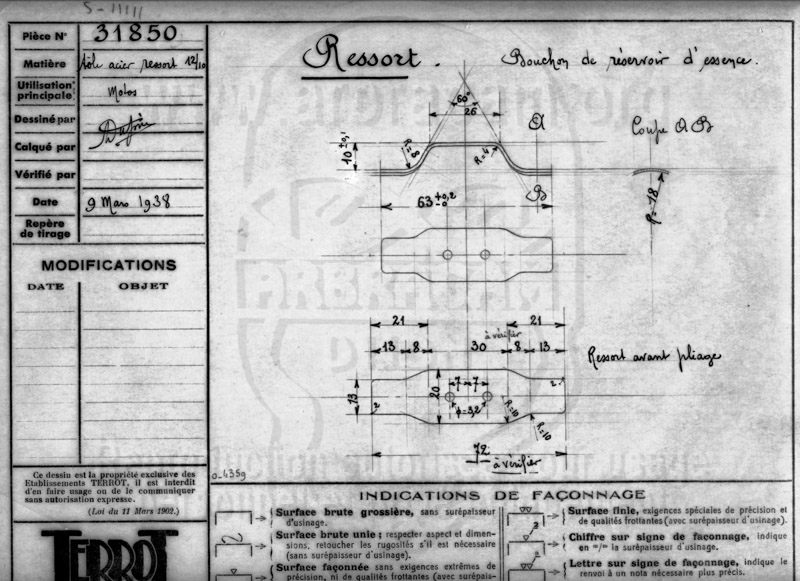 S-11111
Pièce N° 31850
Matière tôle acier ressort 12/10
Utilisation principale Motos
Dessiné par
Calqué par
Vérifié par
Date 9 Mars 1938
Repère de tirage
MODIFICATIONS
DATE OBJET
Ce dessin est la propriété exclusive des
Etablissements TERROT, il est interdit
d'en faire usage ou de le communiquer
sans autorisation expresse.
(Loi du 11 Mars 1902.)
TERROT
Ressort. Bouchon de réservoir d'essence.
60°
26
A
Coupe A B
10 ±0,1
R=8
R=4
B
R=18
63 +0,2 -0
ABRAHAM
21 21
à vérifier
13 8 30 8 13
Ressort avant pliage
13
2
20
7 7
φ=3,2
R=10
R=10
2
72
à vérifier
0-4359
INDICATIONS DE FAÇONNAGE
Surface brute grossière, sans surépaisseur
d'usinage.
Surface brute unie; respecter aspect et dimen-
sions, retoucher les rugosités s'il est nécessaire
(sans surépaisseur d'usinage).
Surface façonnée sans exigences extrêmes de
précision, ni de qualités frottantes (avec surépais-
Surface finie, exigences spéciales de précision et
de qualités frottantes (avec surépaisseur d'usinage).
3
Chiffre sur signe de façonnage, indique
en m/m la surépaisseur d'usinage.
Lettre sur signe de façonnage, indique le
renvoi à un nota nécessaire plus précis.